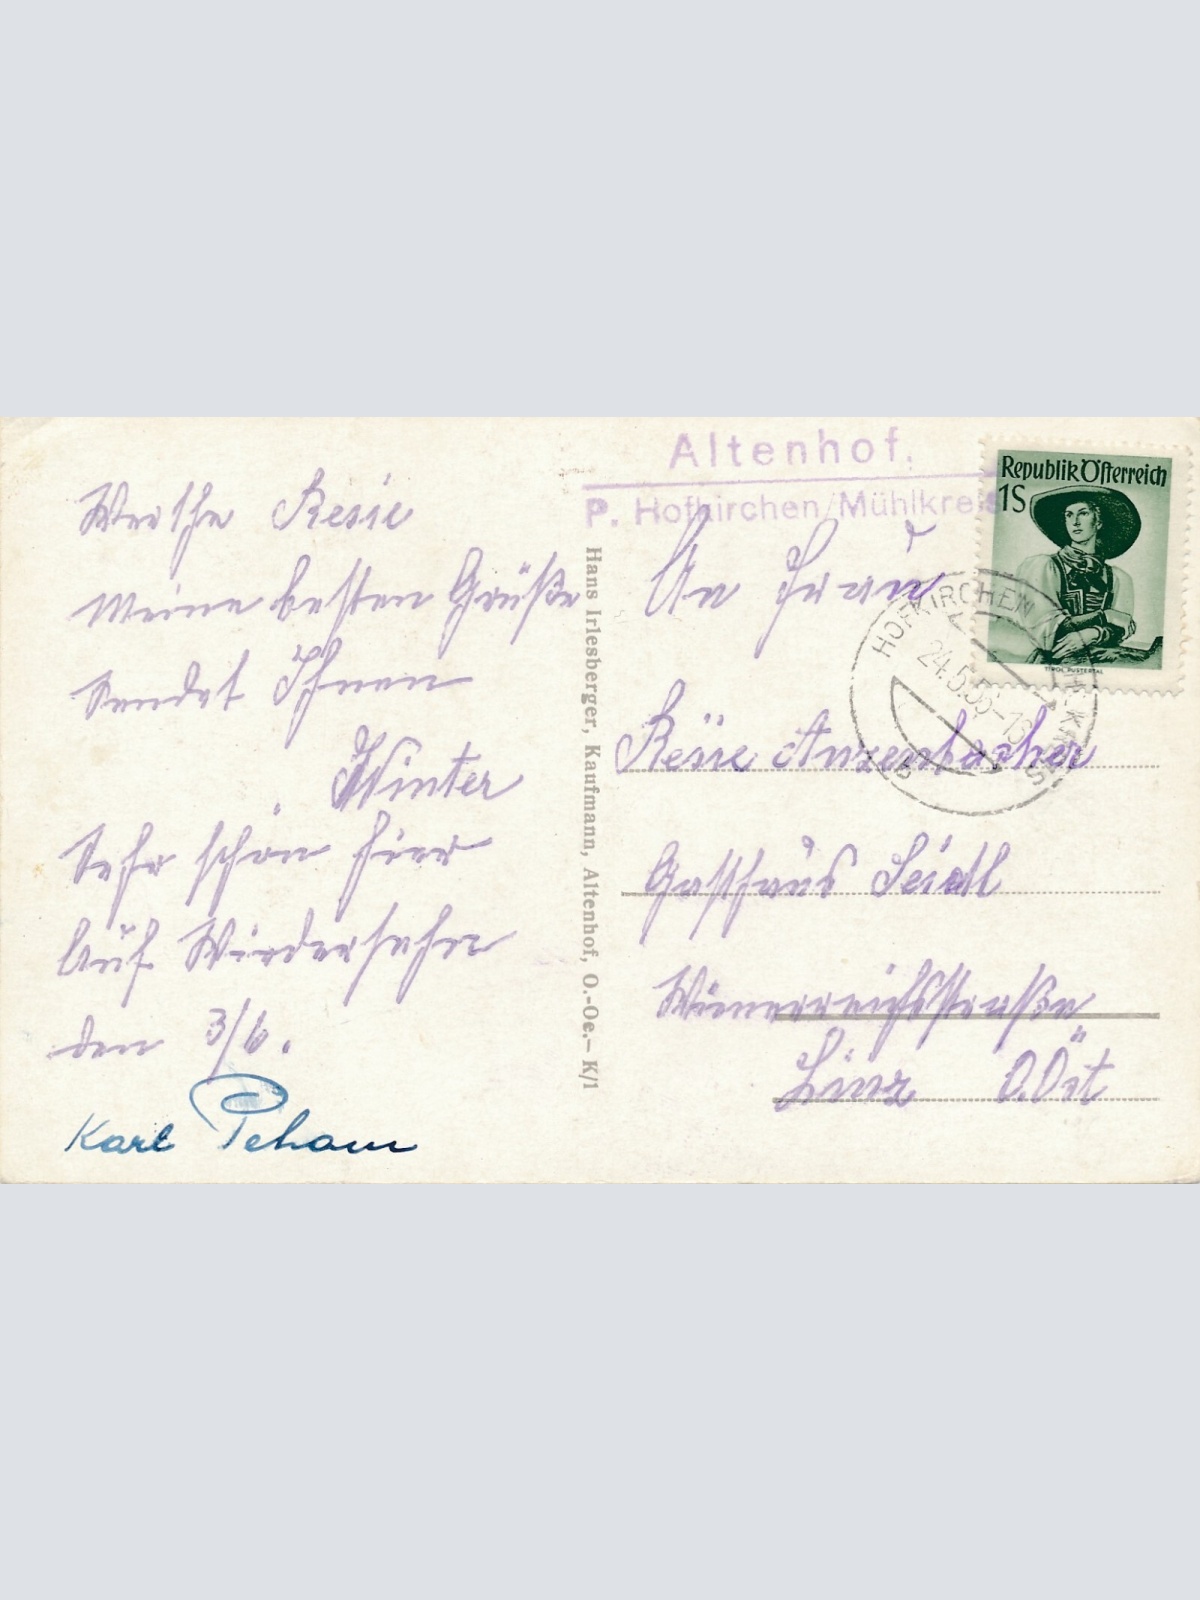 Werthe Resie
meine besten Grüße
sendet Ihnen
Winter
Sehr schön hier
Auf Wiedersehn
den 3/6.
Karl Peham
Hans Irlesberger, Kaufmann, Altenhof, O.-Oe.– K/1
Altenhof.
P. Hofkirchen/Mühlkreis
Republik Österreich
1S
TIROL PUSTERTAL
HOFKIRCHEN
24.5.56-16
An Frau
Resie Anzenbacher
Gasthaus Seidl
Linz O.Öst